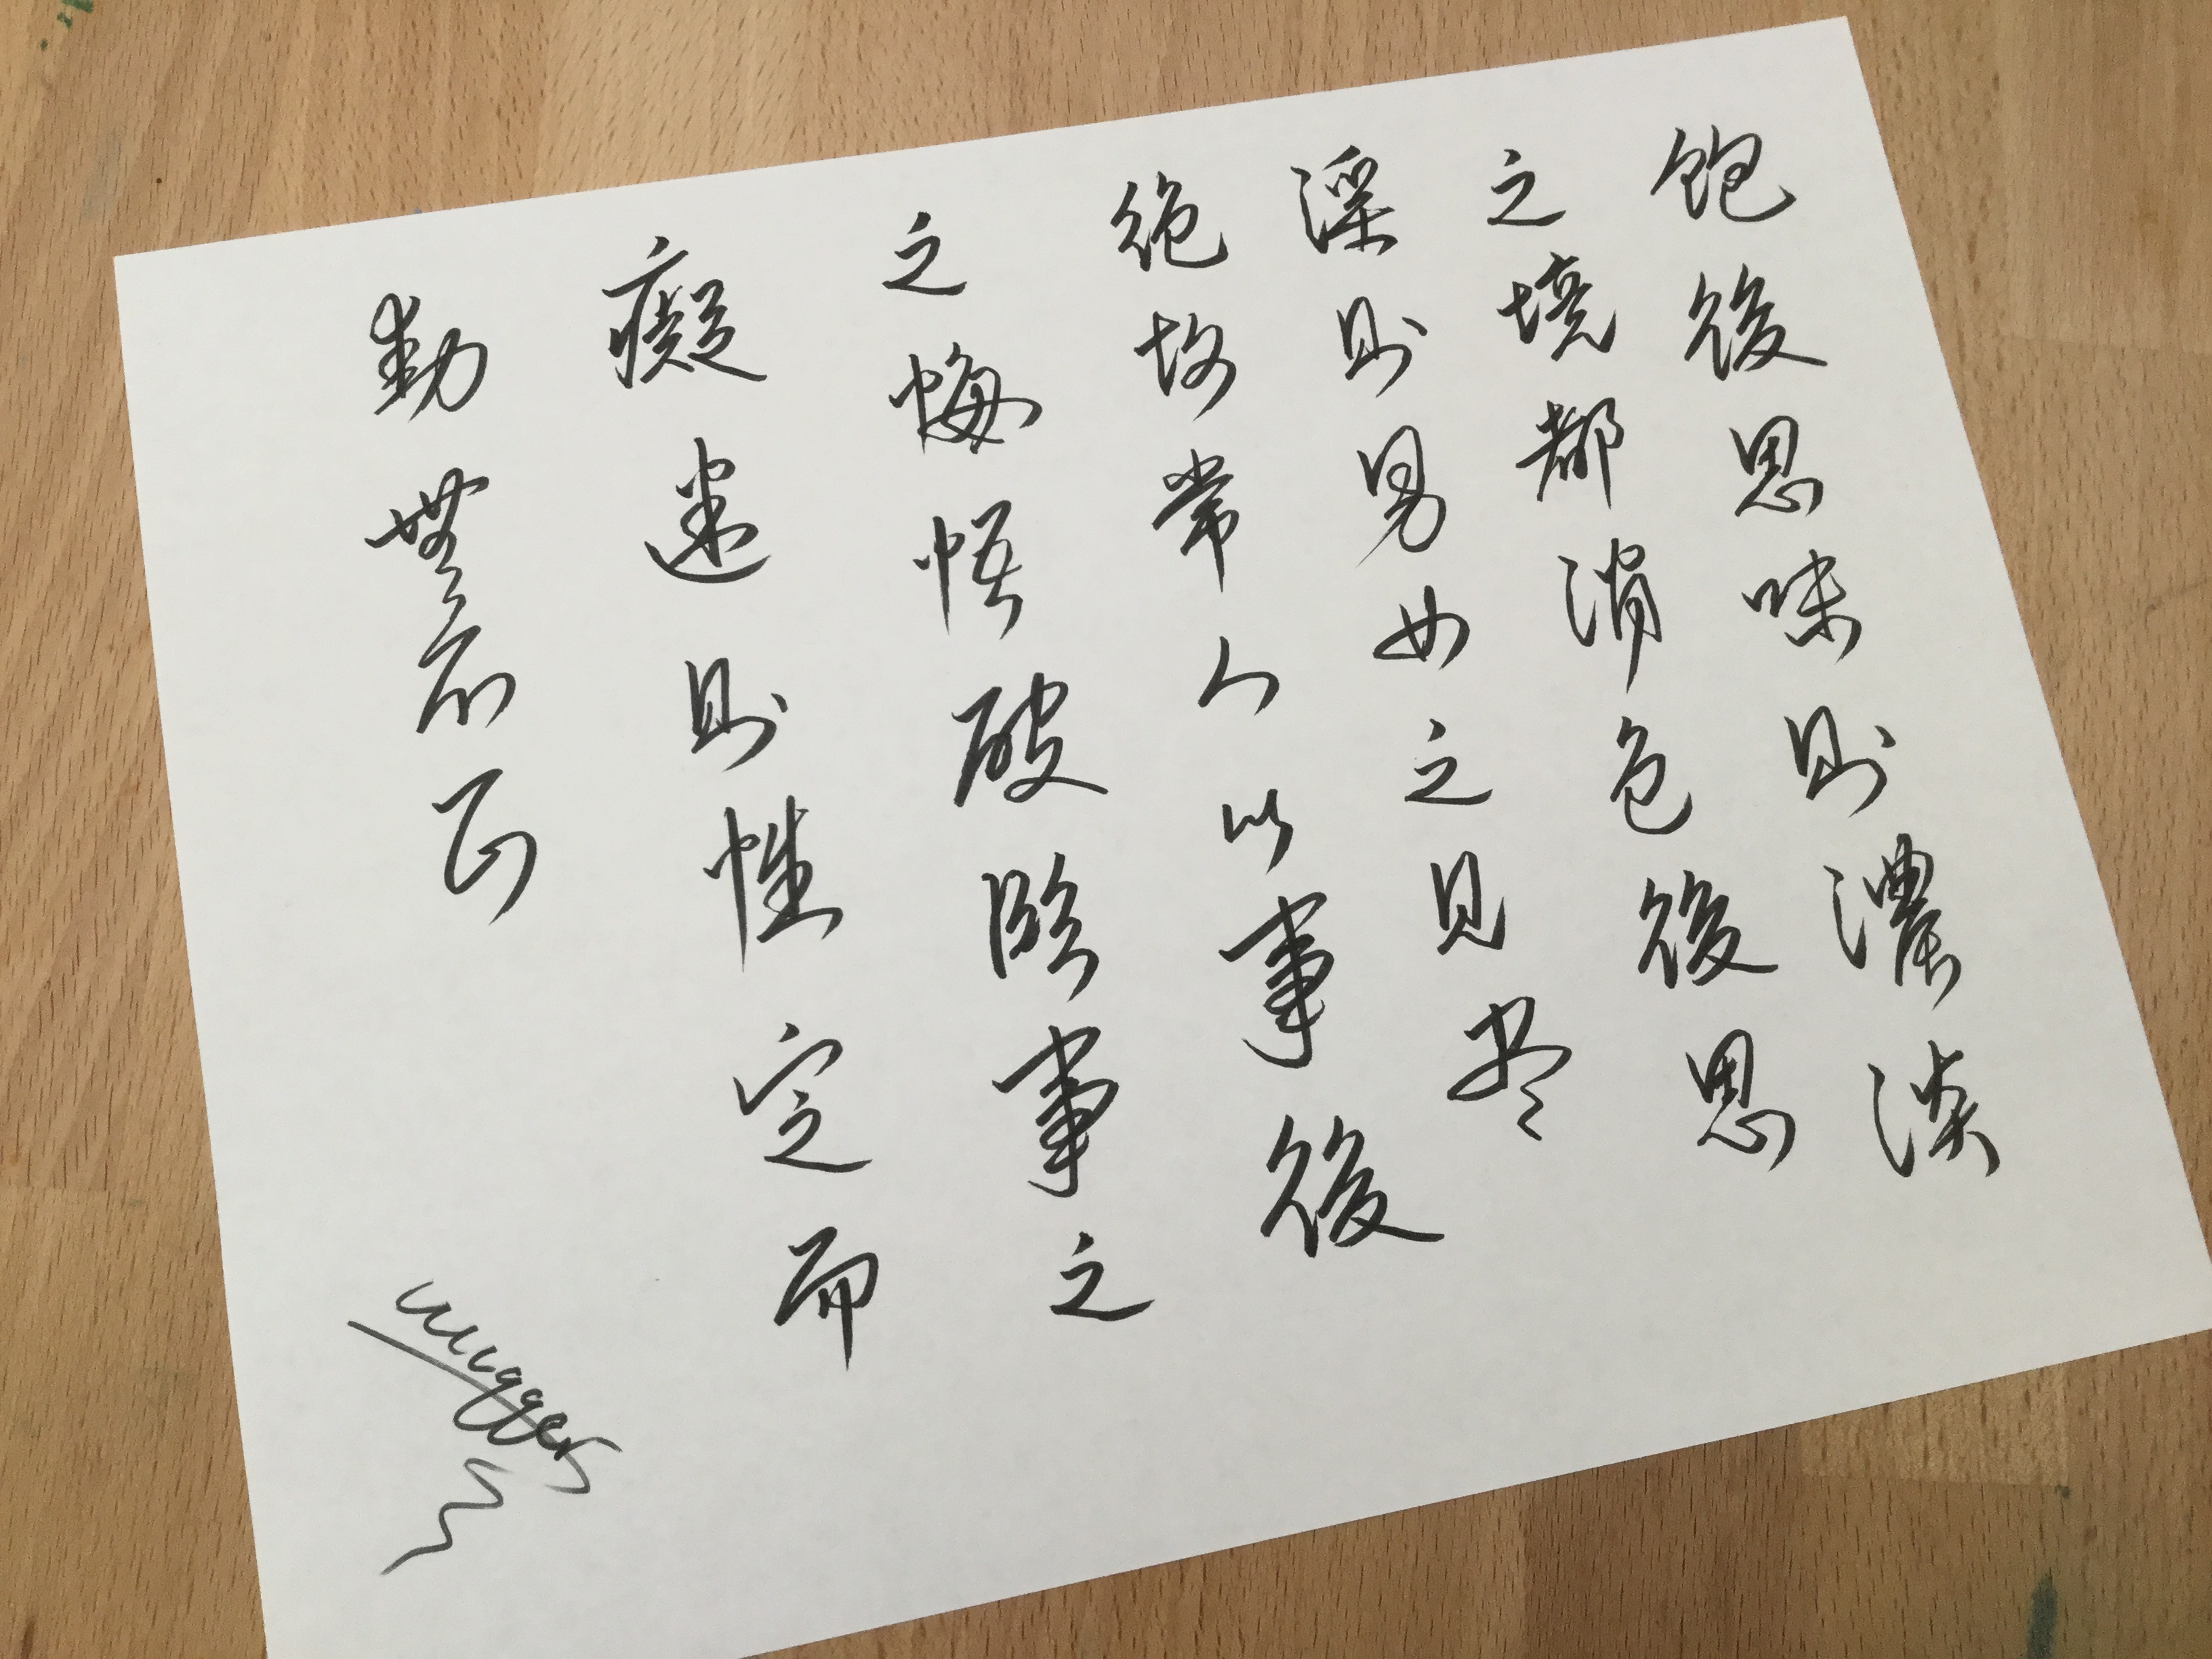 飽後思味則濃淡
之境都消色後思
淫則男女之見尽
絶故常人以事後
之悔悟破臨事之
癡迷則性定而
動無不正